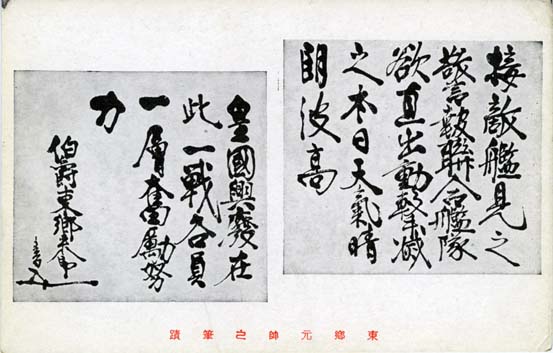 接敵艦見之
警報聯合艦隊
欲直出動撃滅
之本日天氣晴
朗波高
皇國興廢在
此一戰各員
一層奮勵努
力
伯爵東鄉
東鄉元帥之筆蹟